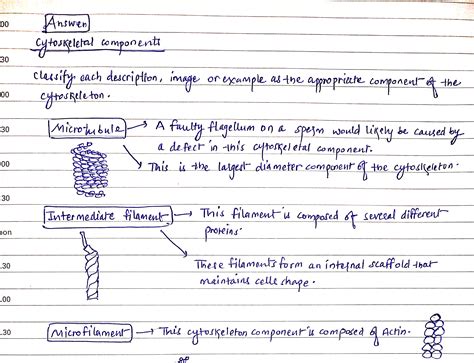 Answer
Cytoskeletal components
Classify each description, image or example as the appropriate component of the
cytoskeleton.
Microtubule → A faulty flagellum on a sperm would likely be caused by
a defect in this cytoskeletal component.
→ This is the largest diameter component of the cytoskeleton.
Intermediate filament → This filament is composed of several different
proteins.
These filaments form an internal scaffold that
maintains cells shape.
Microfilament → This cytoskeleton component is composed of Actin.